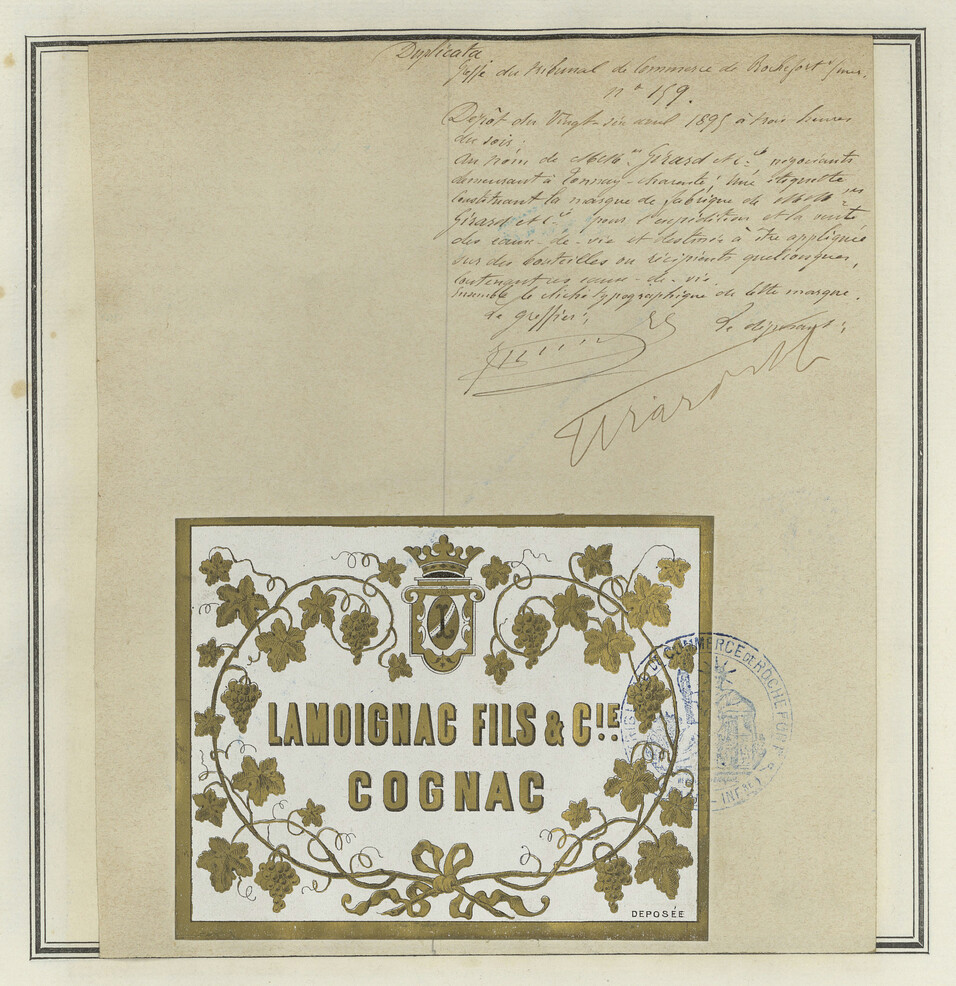 Duplicata
Greffe du tribunal de Commerce de Rochefort s/mer.
nº 159.
Dépôt du Vingt-six avril 1895 à trois heures
du soir;
Au nom de MM Girard et Cie négociants
demeurant à Tonnay-charente; Une étiquette
constituant la marque de fabrique de MM
Girard et Cie pour l'expédition et la vente
des eaux-de-vie et destinée à être appliquée
sur des bouteilles ou récipients quelconques,
contenant ces eaux-de-vie.
Ensemble le cliché typographique de cette marque.
Le greffier; Le déposant;
Girard et Cie
L
LAMOIGNAC FILS & CIE.
COGNAC
DEPOSÉE
DE COMMERCE DE ROCHEFORT
INFRE